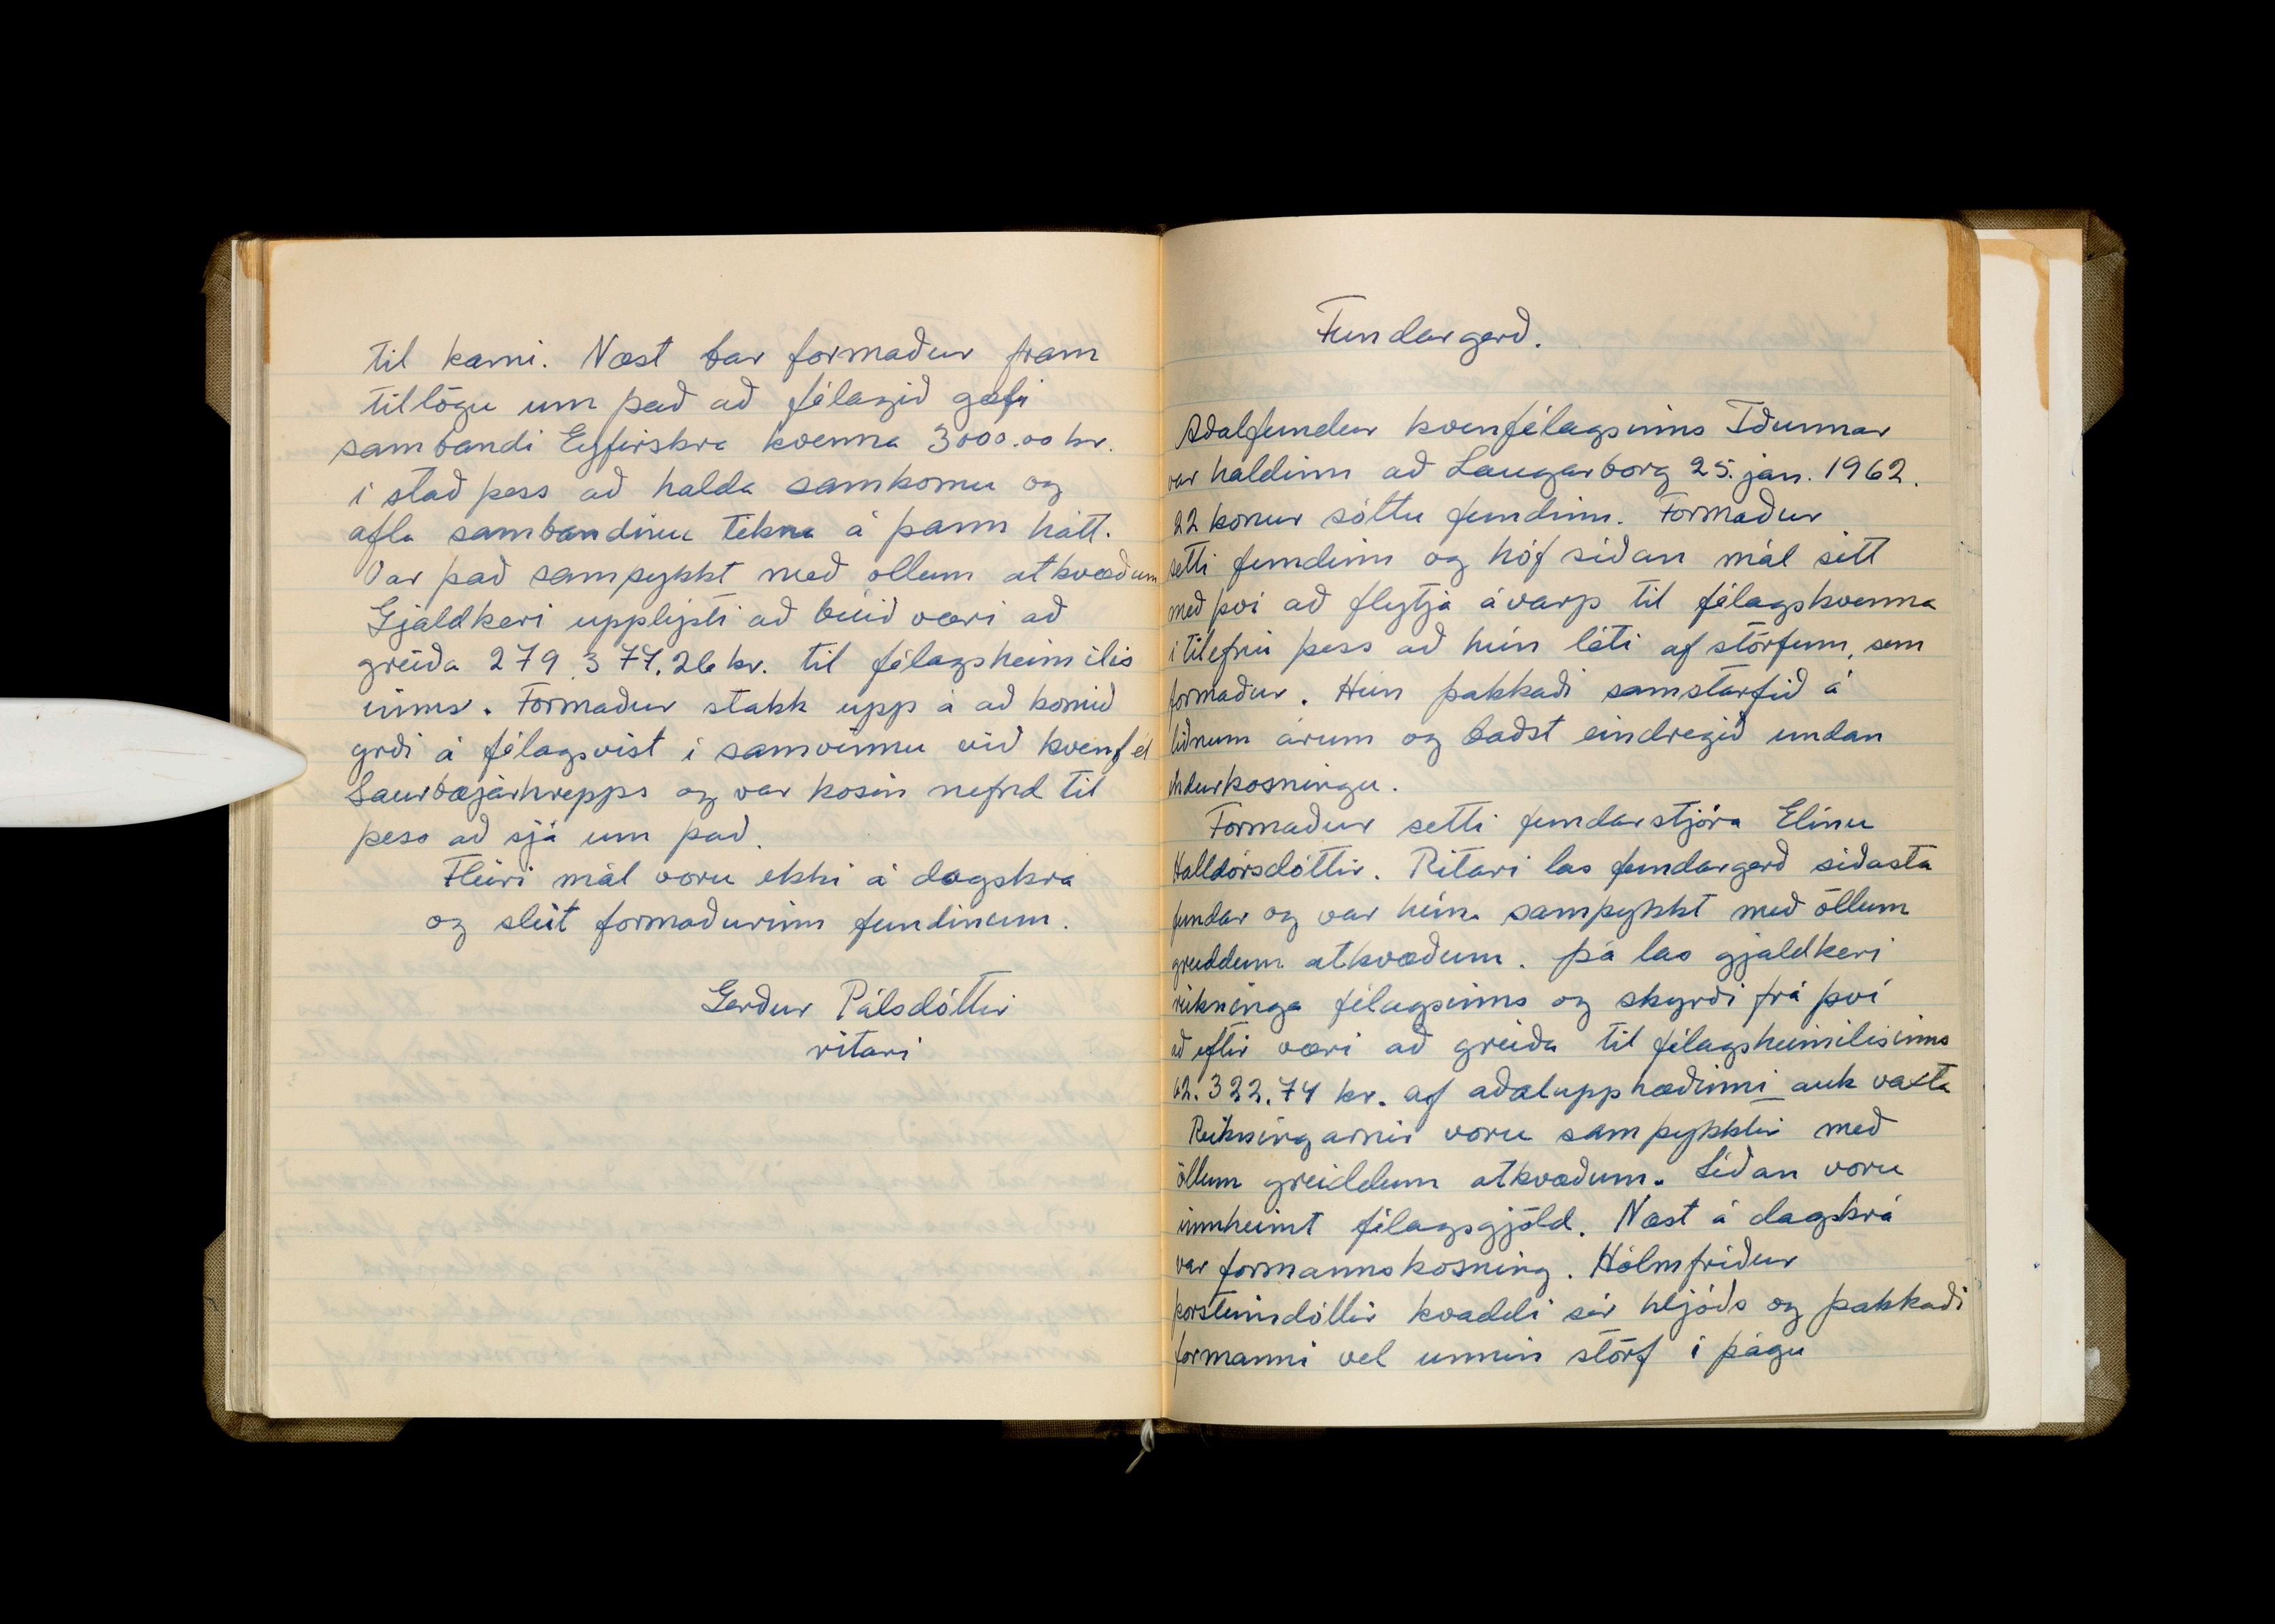 til kæmi. Næst bar formaður fram
tillögu um það að félagið gæfi
sambandi Eyfirskra kvenna 3000.00 kr.
í stað þess að halda samkomu og
afla sambandinu tekna á þann hátt.
Var það samþykkt með öllum atkvæðum
Gjaldkeri upplýsti að búið væri að
greiða 279.377.26 kr. til félagsheimilis
inns. Formaður stakk upp á að komið
yrði á félagsvist í samvinnu við kvenfél
Saurbæjarhrepps og var kosin nefnd til
þess að sjá um það.
Fleiri mál voru ekki á dagskra
og sleit formaðurinn fundinum.
Gerður Pálsdóttir
ritari
Fundargerð.
Aðalfundur kvenfélagsinns Iðunnar
var haldinn að Laugarborg 25. jan. 1962.
22 konur sóttu fundinn. Formaður
setti fundinn og hóf síðan mál sitt
með því að flytja ávarp til félagskvenna
í tilefni þess að hún léti af störfum, sem
formaður. Hún þakkaði samstarfið á
liðnum árum og baðst eindregið undan
endurkosningu.
Formaður setti fundarstjóra Elínu
Halldórsdóttir. Ritari las fundargerð síðasta
fundar og var hún samþykkt með öllum
greiddum atkvæðum. Þá las gjaldkeri
reikninga félagsinns og skyrði frá því
að eftir væri að greiða til félagsheimilisinns
62.322.74 kr. af aðalupphæðinni auk vaxta
Reikningarnir voru samþykktir með
öllum greiddum atkvæðum. Síðan voru
innheimt félagsgjöld. Næst á dagskrá
var formannskosning. Hólmfríður
Þorsteinsdóttir kvaddi sér hljóðs og þakkaði
formanni vel unnin störf í þágu